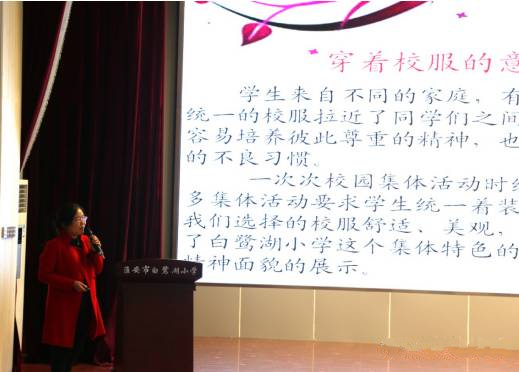 穿着校服的意
学生来自不同的家庭，有
统一的校服拉近了同学们之间
容易培养彼此尊重的精神，也
的不良习惯。
一次次校园集体活动时
多集体活动要求学生统一着装
我们选择的校服舒适、美观，
了白鹭湖小学这个集体特色的
精神面貌的展示。
淮安市白鹭湖小学